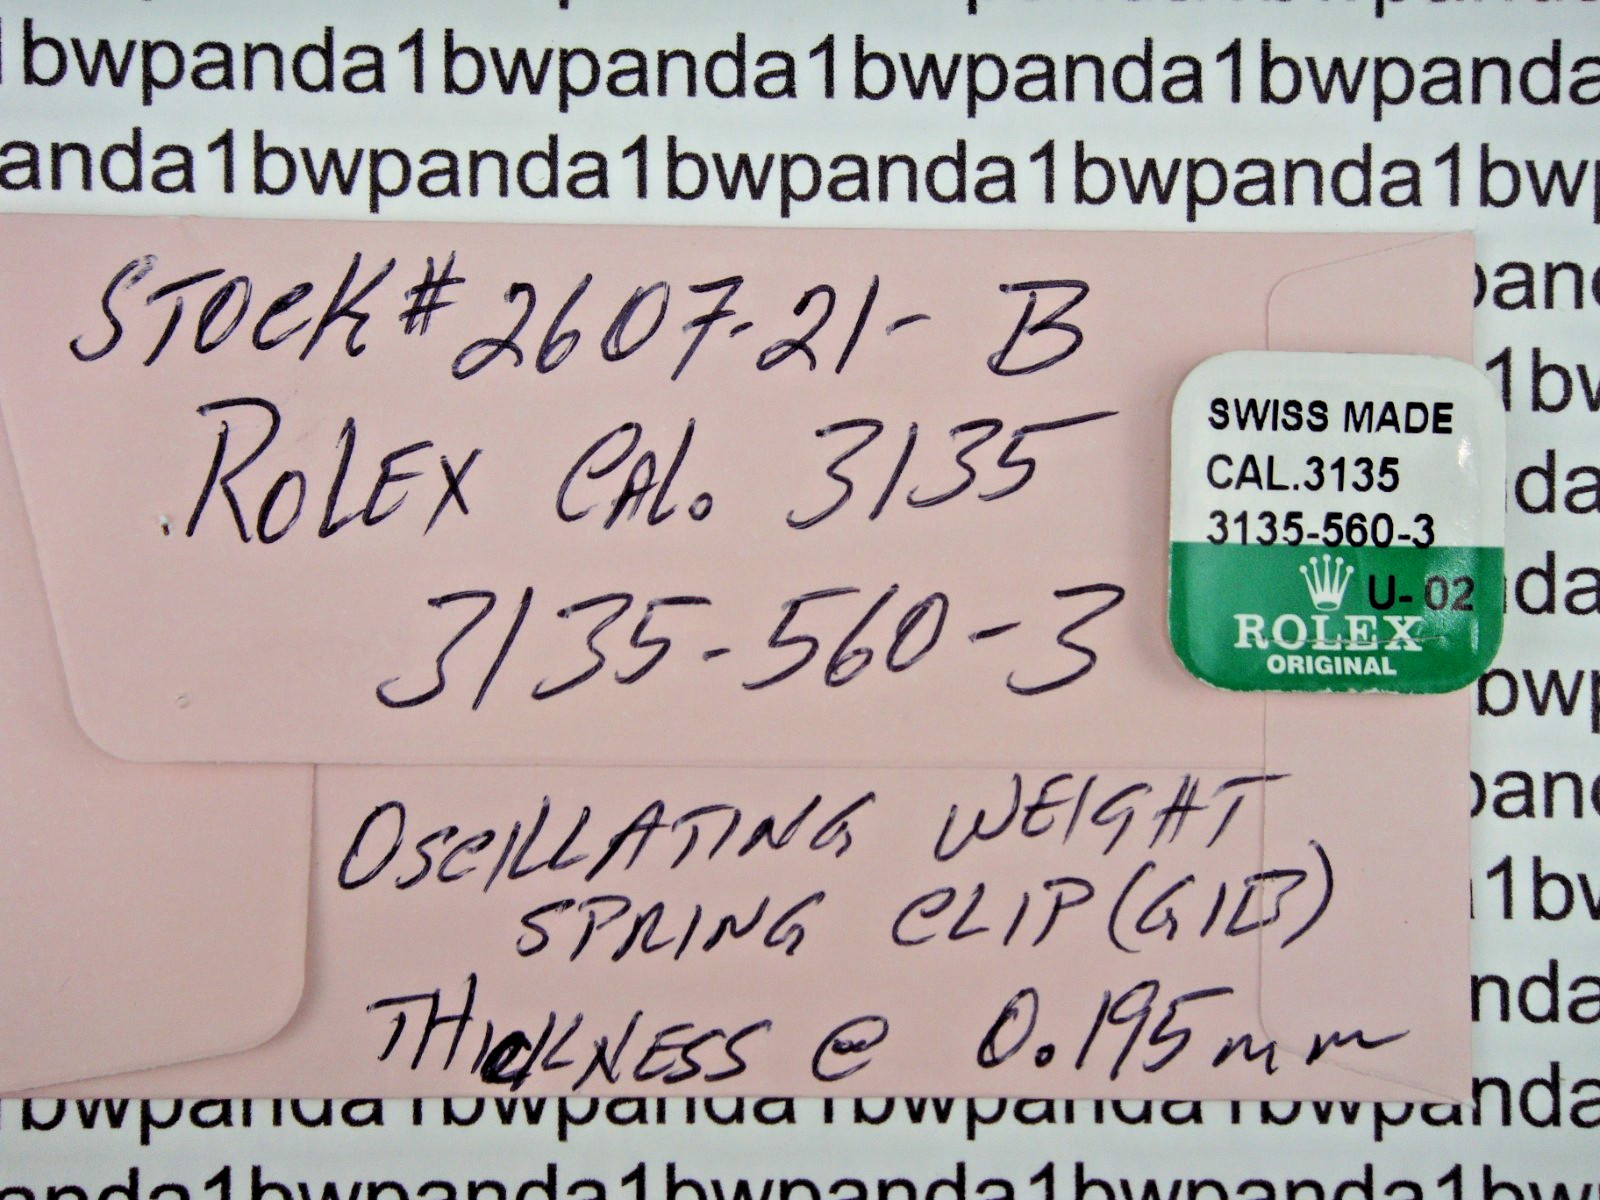 1bwpanda1bwpanda1bwpanda1bwpanda
panda1bwpanda1bwpanda1bwpanda1bwp
STOCK # 2607-21- B
ROLEX CAL. 3135
3135-560-3
OSCILLATING WEIGHT
SPRING CLIP (GIB)
THICKNESS @ 0.195mm
SWISS MADE
CAL.3135
3135-560-3
U-02
ROLEX
ORIGINAL
pand
1bw
nda
nda
bwp
pand
1bw
nda
nda
1bwpanda1bwpanda1bwpanda1bwpanda
panda1bwpanda1bwpanda1bwpanda1bwp